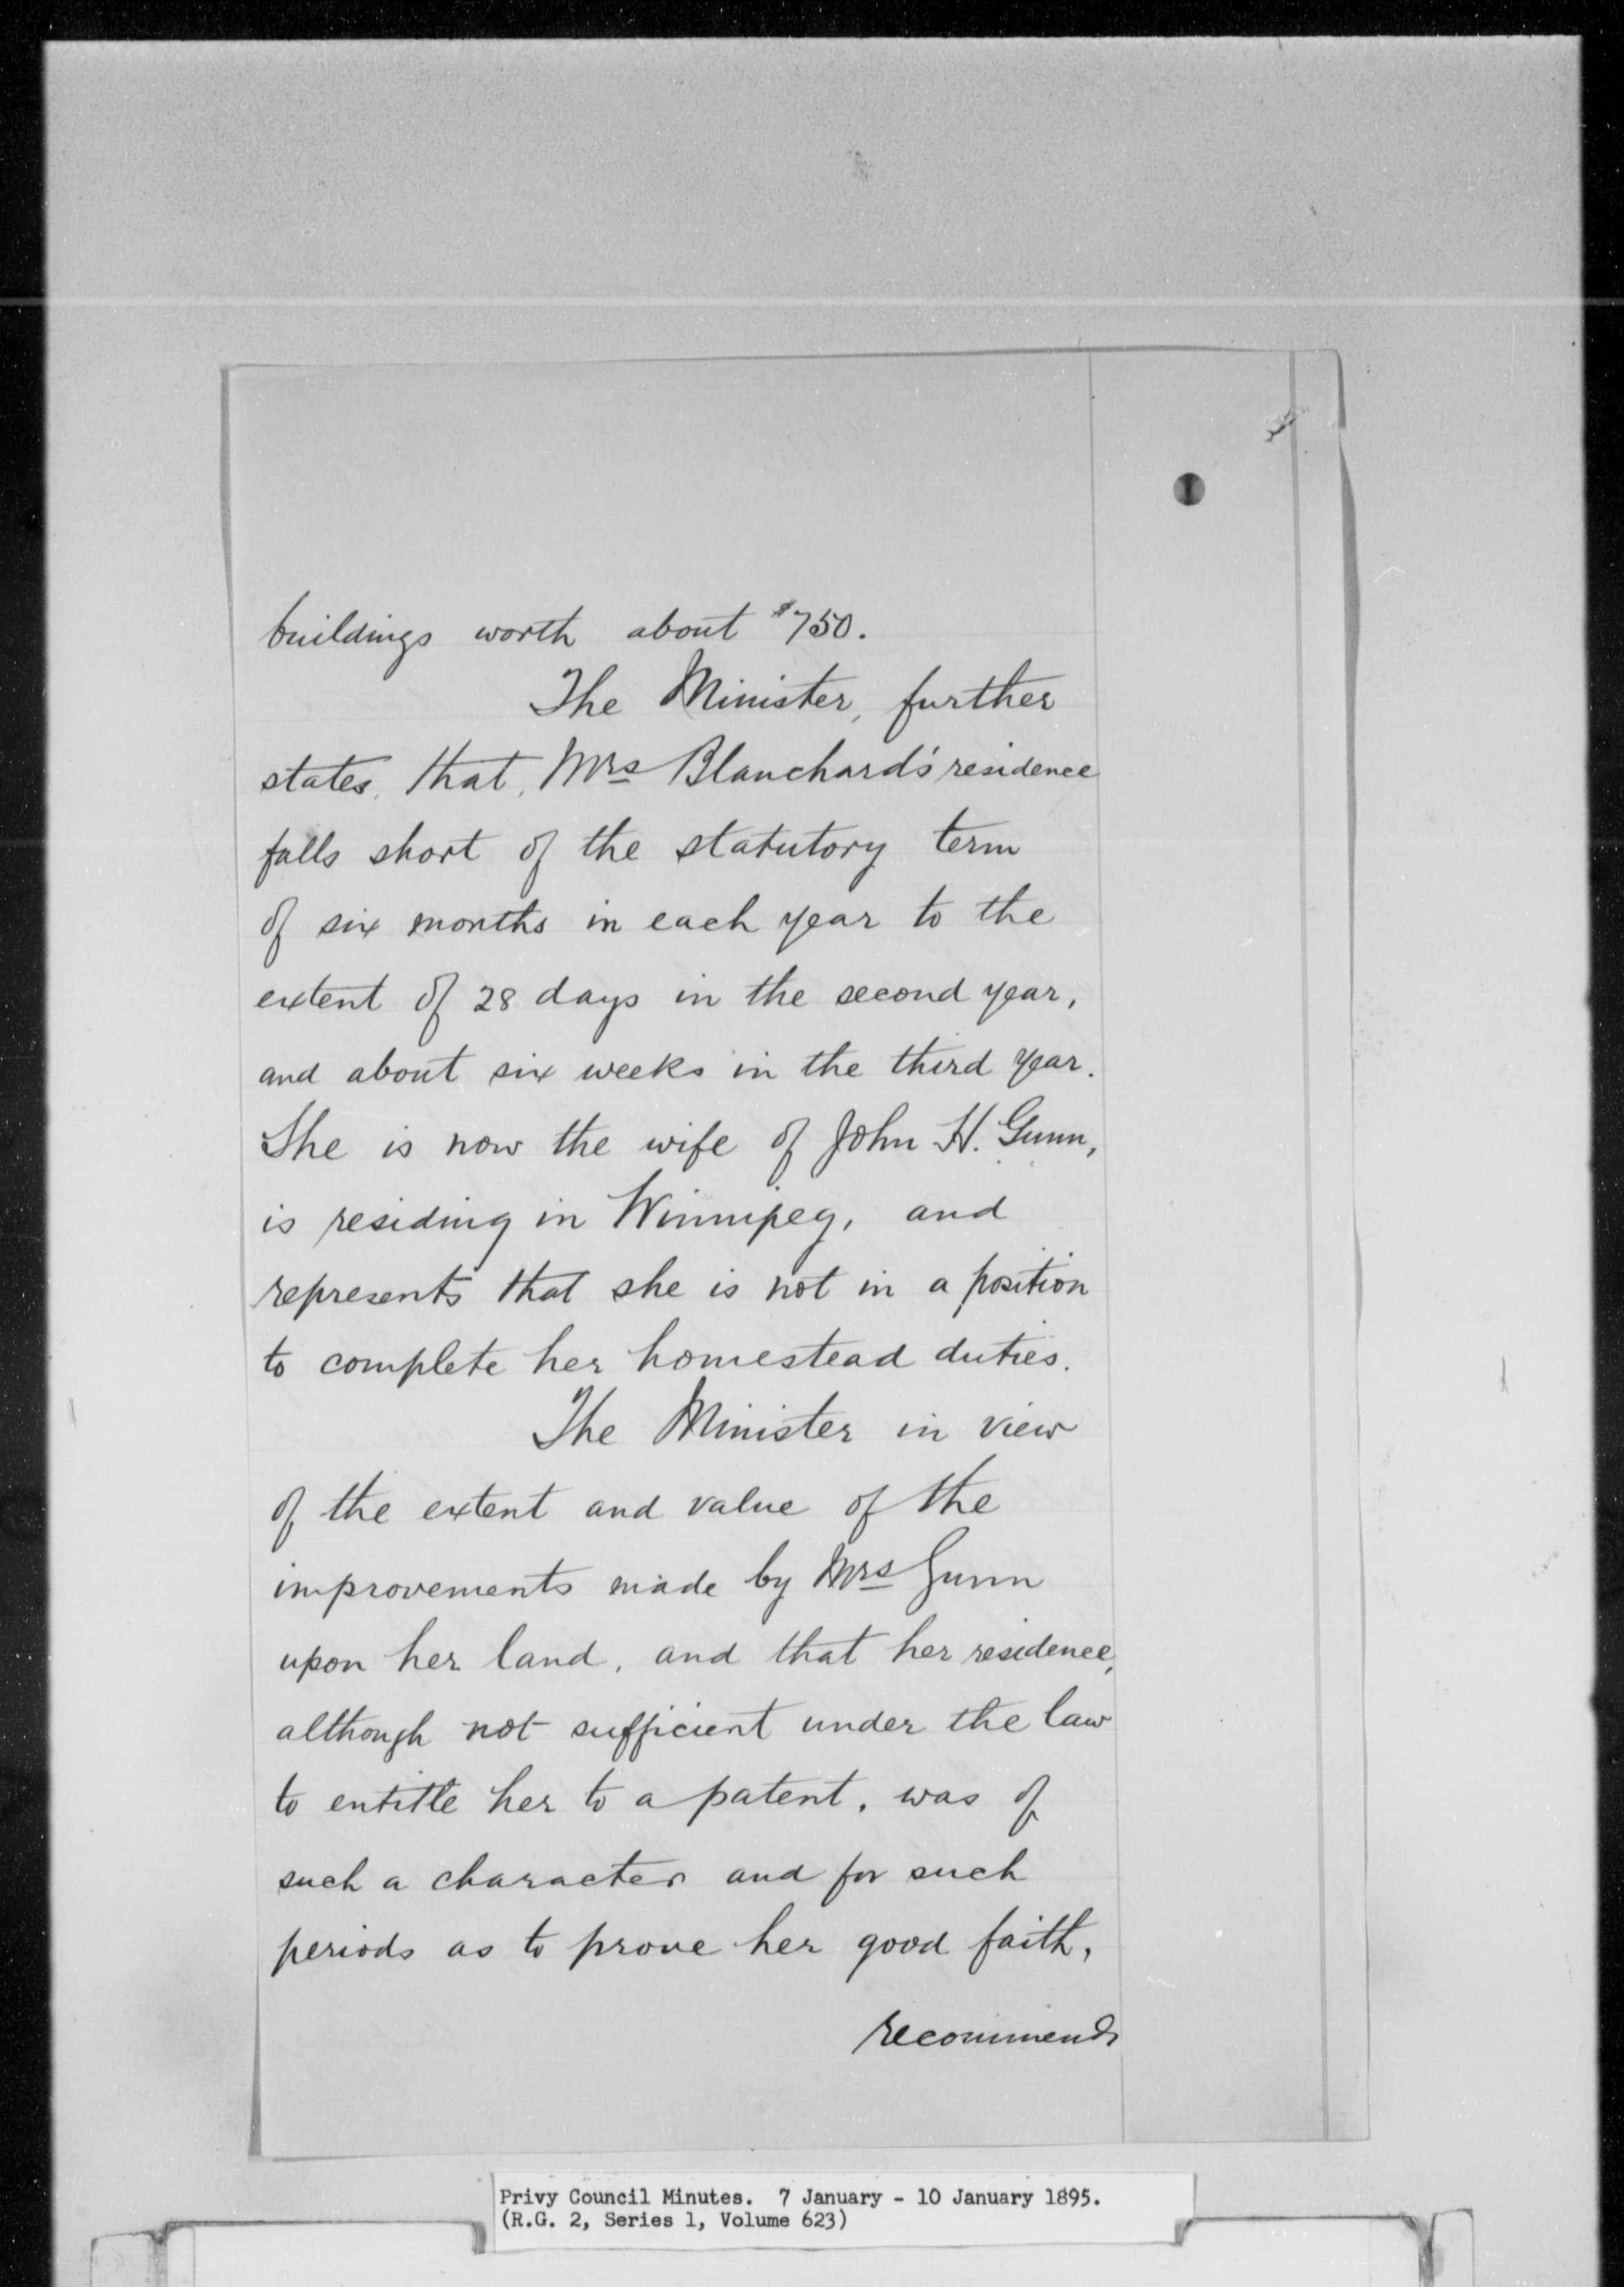 buildings worth about $750.
The Minister, further
states, that, Mrs Blanchard's residence
falls short of the statutory term
of six months in each year to the
extent of 28 days in the second year,
and about six weeks in the third year.
She is now the wife of John H. Gunn,
is residing in Winnipeg, and
represents that she is not in a position
to complete her homestead duties.
The Minister in view
of the extent and value of the
improvements made by Mrs Gunn
upon her land, and that her residence,
although not sufficient under the law
to entitle her to a patent, was of
such a character and for such
periods as to prove her good faith,
recommends
Privy Council Minutes. 7 January - 10 January 1895.
(R.G. 2, Series 1, Volume 623)